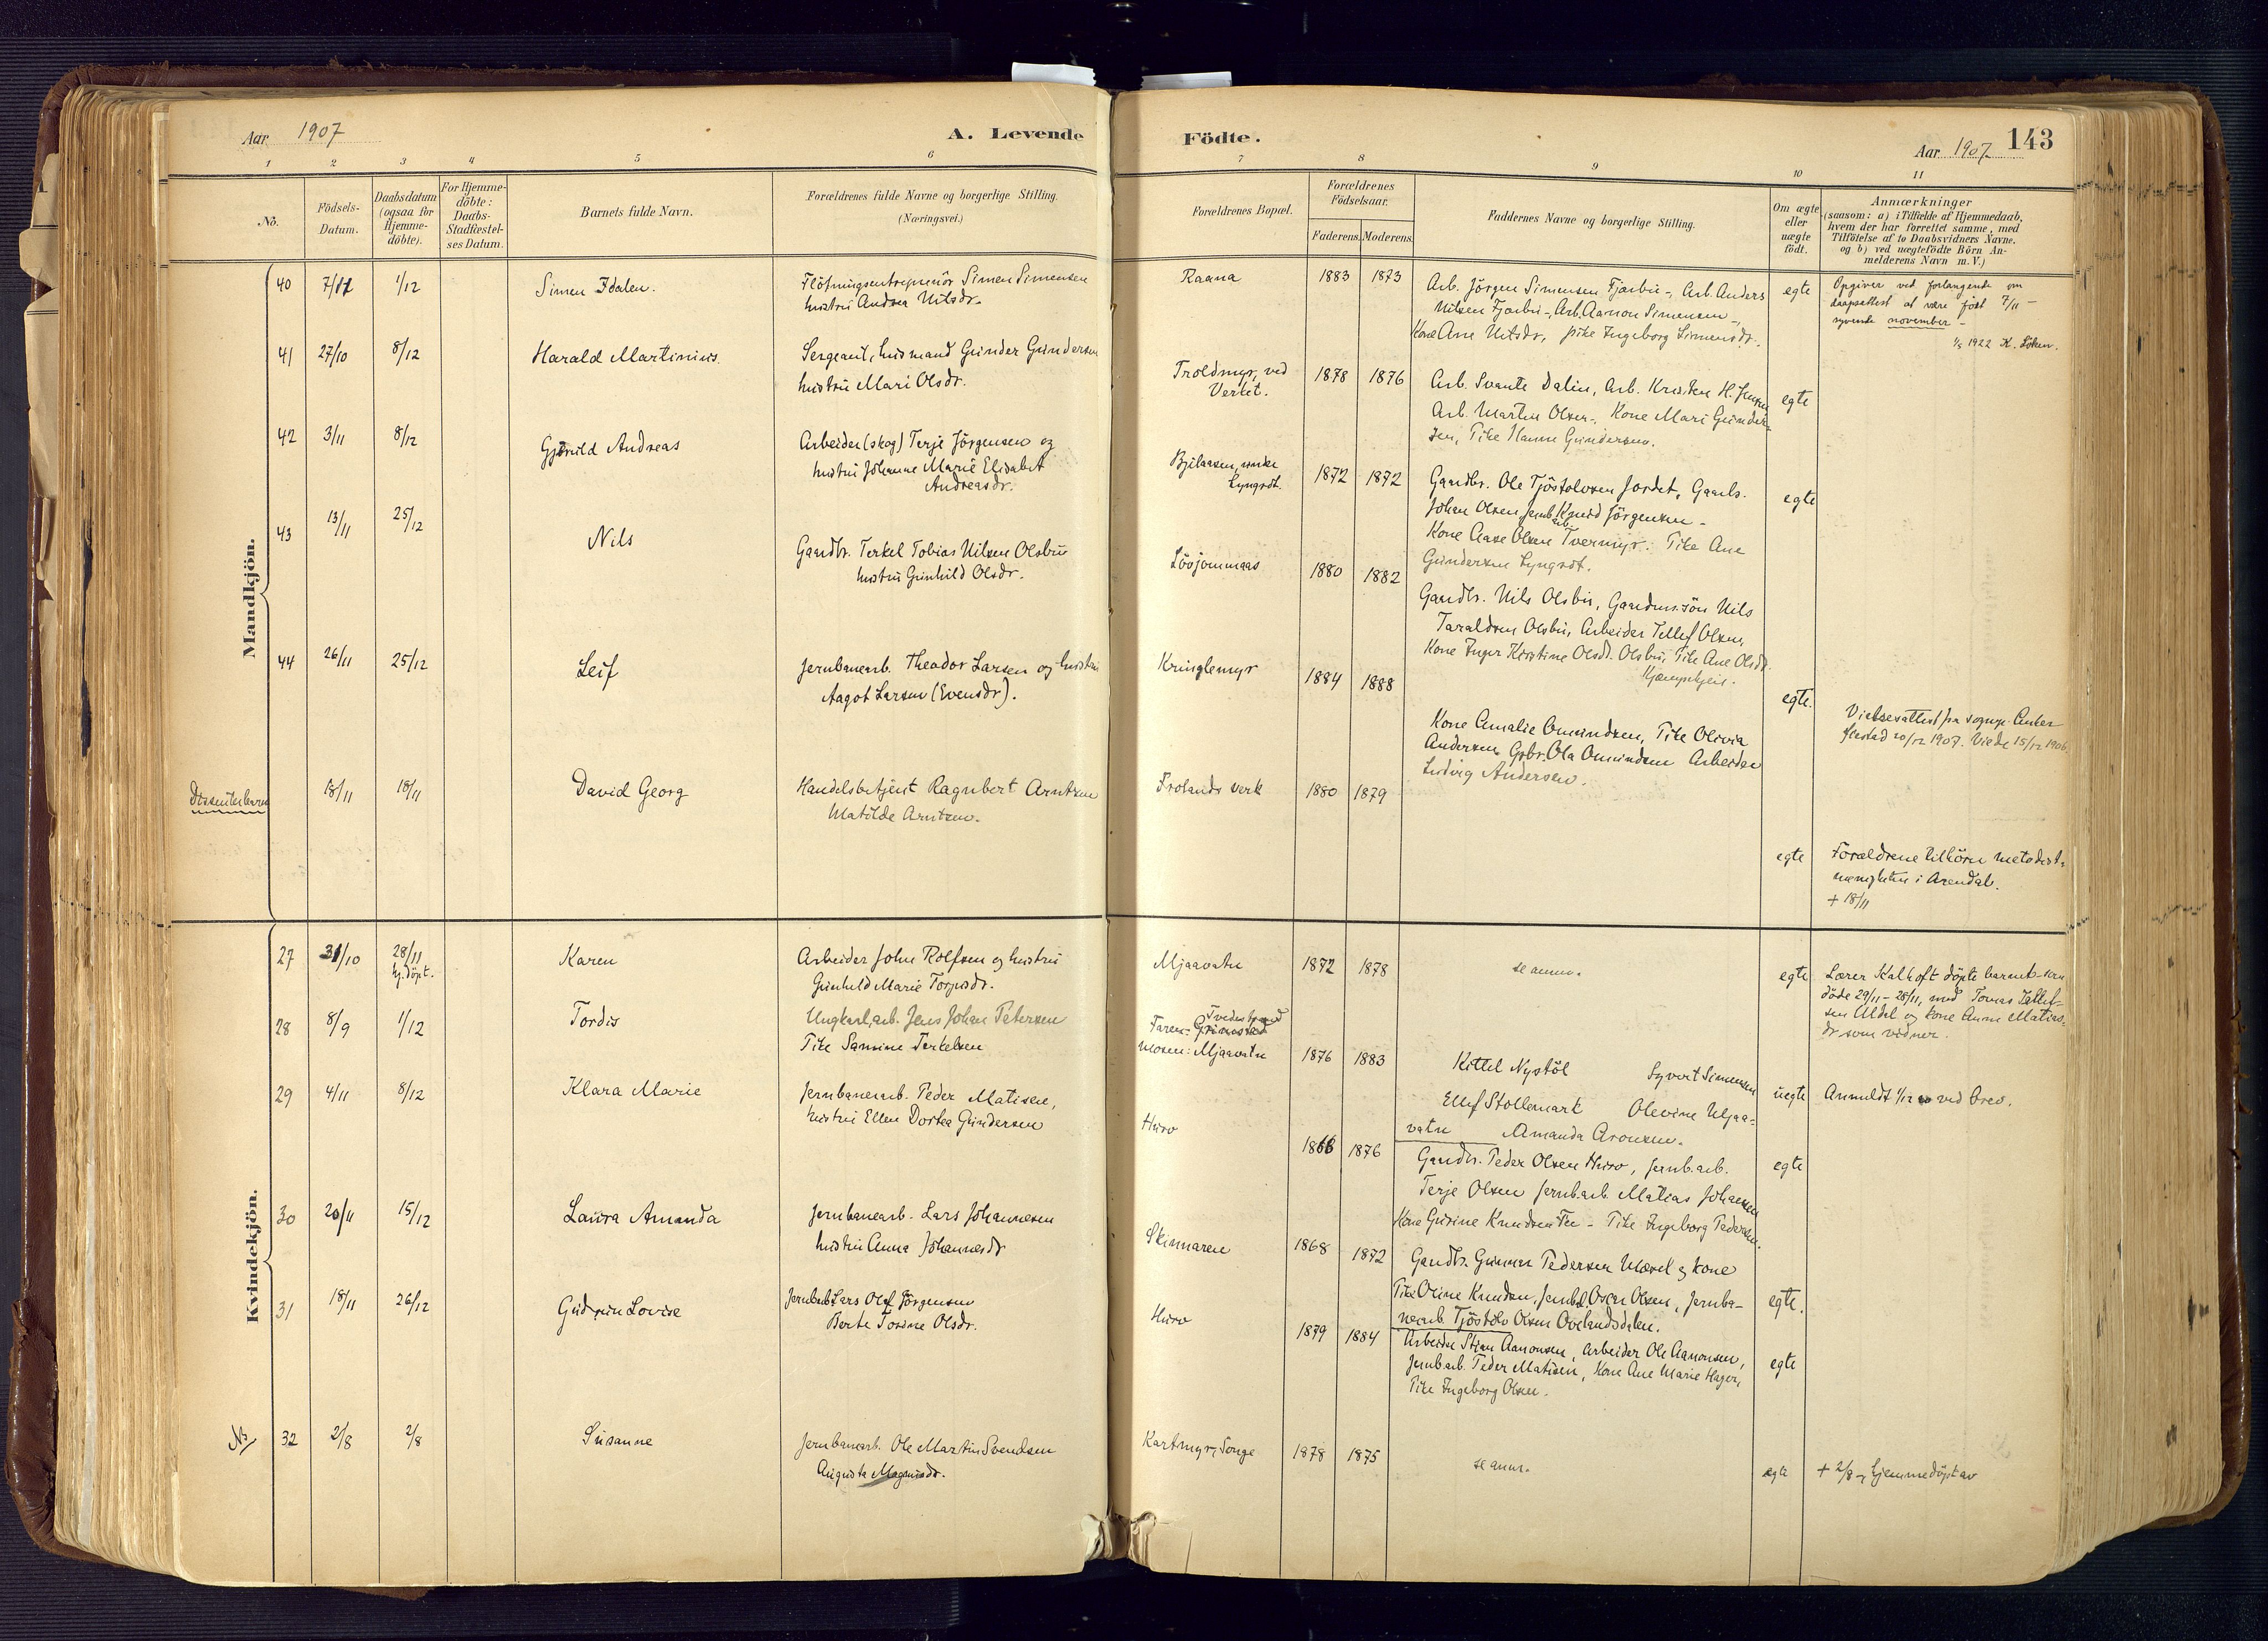 Aar 1907
A. Levende
Födte.
Aar 1907
143
1 2 3 4 5 6 7 8 9 10 11
No.
Födsels-
Datum.
Daabsdatum
(ogsaa for
Hjemme-
döbte).
For Hjemme-
döbte:
Daabs-
Stadfæstel-
ses Datum.
Barnets fulde Navn.
Forældrenes fulde Navne og borgerlige Stilling.
(Næringsvei.)
Forældrenes Bopæl.
Forældrenes
Födselsaar.
Faderens. Moderens.
Faddernes Navne og borgerlige Stilling.
Om ægte
eller
uægte
födt.
Anmærkninger
(saasom: a) i Tilfælde af Hjemmedaab,
hvem der har forrettet samme, med
Tilföielse af to Daabsvidners Navne.
og b) ved uægtefödte Börn An-
melderens Navn m. V.)
Mandkjön.
40 7/11 1/12 Simen Idalen.
Flötningsentreprenör Simen Simensen
hustru Andrea Nilsdr.
Raana 1883 1873
Arb. Jörgen Simensen Fjærbu-, Arb. Anders
Nilsen Fjærbu-, Arb. Aanon Simensen-,
Kone Ane Nilsdr, pike Ingeborg Simensdr.
egte
Opgiver ved forlangende om
daapsattest at være födt 7/11 -
syvende november -
1/5 1922 K. Löken.
41 27/10 8/12 Harald Martinius.
Sergeant, husmand Gunder Gundersen
hustru Mari Olsdr.
Troldmyr, ved
Verket.
1878 1876
Arb. Svante Dalin, Arb. Kristen H. Jensen
Arb. Martin Olsen-, Kone Mari Gunder-
sen, Pike Hanne Gundersen.
egte
42 3/11 8/12 Gjeruld Andreas
Arbeider (skog) Terje Jörgensen og
hustru Johanne Marie Elisabet
Andreasdr.
Lyngrdt.
1872 1872
Gaardbr. Ole Tjöstolvsen Jordet, Gaardb.
Johan Olsen, Jernb. arb. Knud Jörgensen -
Kone Aase Olsen Tvermyr. Pike Ane
Gundersen Lyngrdt.
egte
43 13/11 25/12 Nils
Gaardbr. Terkel Tobias Nilsen Olsbu
hustru Gunhild Olsdr.
Lövjommaas
1880 1882
Gaardbr. Nils Olsbu, Gaardm. sön Nils
Taraldsen Olsbu, Arbeider Tellef Olsen,
Kone Inger Kirstine Olsdr. Olsbu, Pike Ane Olsdr.
44 26/11 25/12 Leif
Jernbanearb. Theodor Larsen og hustru
Aagot Larsen (Evensdr).
Kringlemyr
1884 1888
Kone Amalie Omundsen, Pike Olivia
Andersen, Grbr. Ola Omundsen Arbeider
Ludvig Andersen.
egte.
Vielsesattest fra sognepr.
20/12 1907. Viede 15/12 1906
Dissenterbarn
18/11 18/11 David Georg
Handelsbetjent Ragnbert Arntzen
Matilde Arntzen.
Frolands verk 1880 1879
egte
Forældrene tilhörer metodist-
menigheten i Arendal.
+ 18/11
Kvindekjön.
27 31/10 28/11
hj.döpt.
Karen
Arbeider John Rolfsen og hustru
Gunhild Marie Torjusdr.
Mjaavatn 1872 1878
se anm.
egte
Lærer Kalhoft döpte barnet som
döde 29/11 - 28/11, med Tomas Tellef-
sen Uldal og kone Anne Matias-
dr som vidner.
28 8/9 1/12 Tordis
Ungkarl, arb. Jens Johan Petersen
Pike Samine Terkelsen
Tvedestrand
Faren: Grimstad
Moren: Mjaavatn
1876 1883
Kittel Nystöl Syvert Simensen
Ellef Stollemark Olevine Mjaa-
vatn Amanda Aronsen.
uegte
Anmeldt 1/12 ved brev.
29 4/11 8/12 Klara Marie
Jernbanearb. Peder Matisen,
hustru Ellen Dortea Gundersen
Hurv
1866 1876
Gaardbr. Peder Olsen Hurv, Jernb. arb.
Terje Olsen Jernb.arb. Matias Johansen
Kone Gurine Knudsen Fee - Pike Ingeborg Pedersen.
egte
30 20/11 15/12 Laura Amanda
Jernbanearb. Lars Johannesen
hustru Anna Johannesdr
Skinnaren
1868 1872
Gaardbr. Gunnar Pedersen Mæsel og kone
Pike Oline Knudsen, Jernb.arb. Oscar Olsen, Jernba-
nearb. Tjöstolv Olsen Ovelandsdalen.
egte.
31 18/11 26/12 Gudrun Lovise
Jernb.arb. Lars Olaf Jörgensen
Berte Torine Olsdr.
Hurv
1879 1884
Arbeider Stian Aanonsen, Arbeider Ole Aanonsen,
Jernb.arb. Peder Matisen, Kone Ane Marie Hagen,
Pike Ingeborg Olsen.
egte
NB 32 2/8 2/8 Susanne
Jernbanearb. Ole Martin Svendsen
Augusta Magnusdr.
Kartmyr, Songe 1878 1875
se anm.
egte
+ 2/8 - hjemmedöpt av